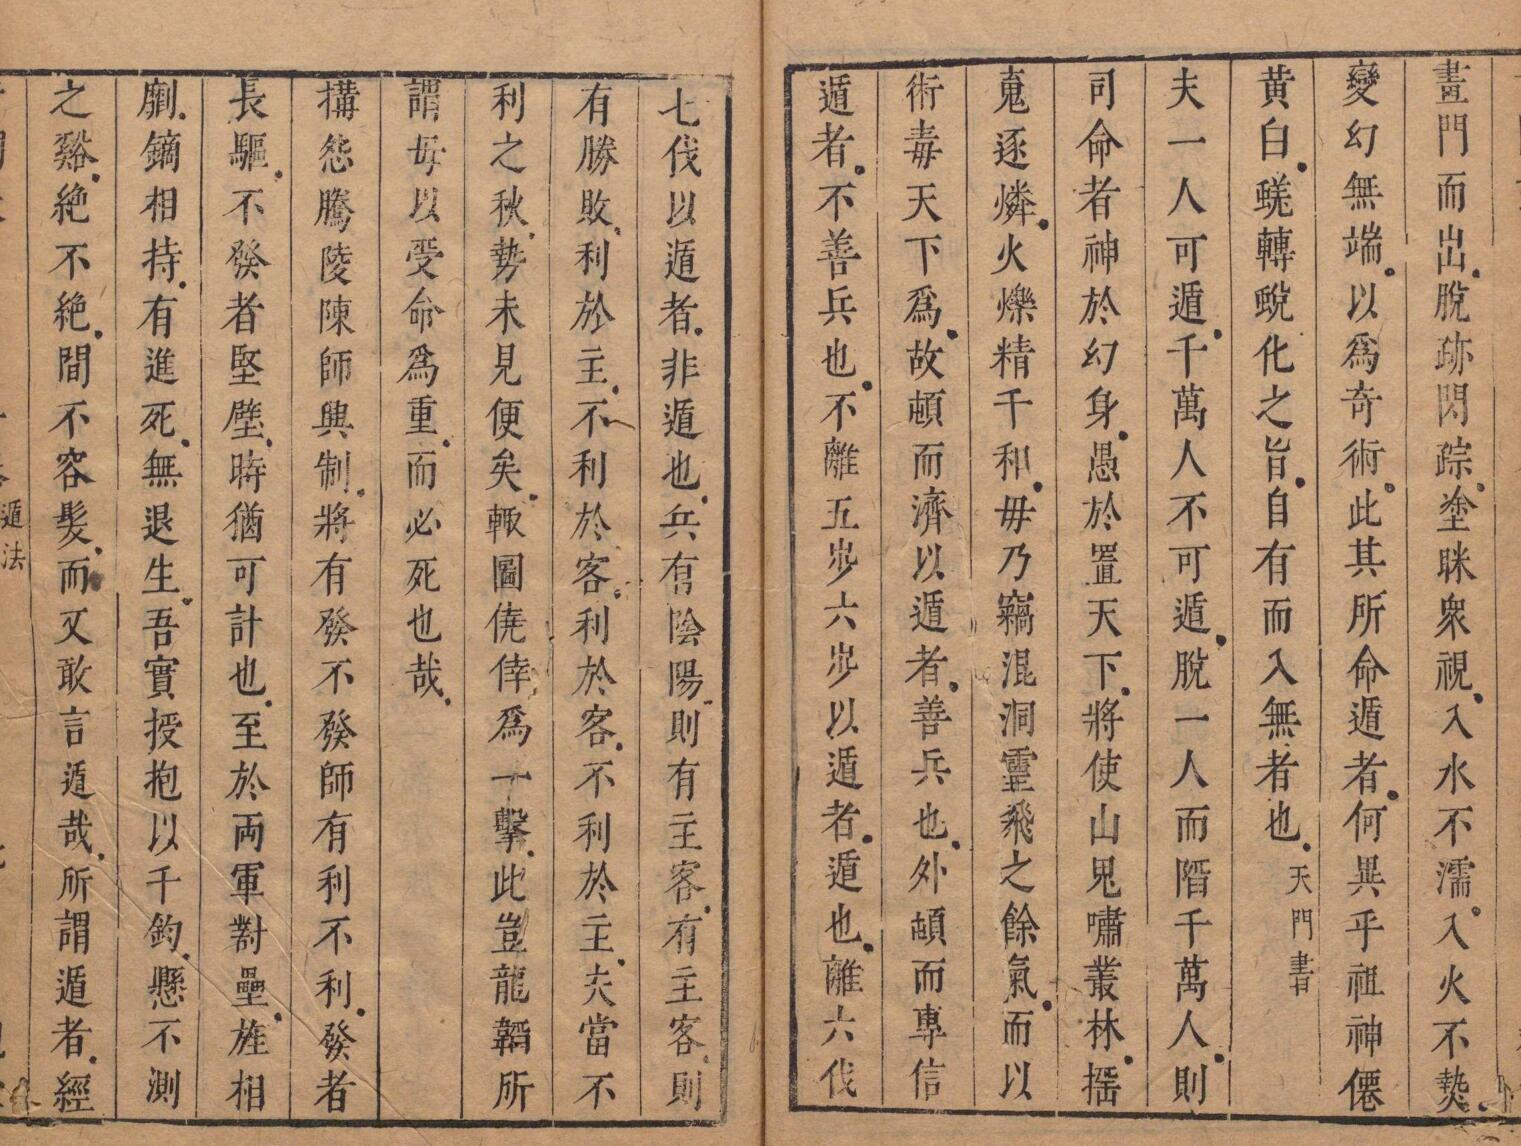 畫門而出脫跡閃踪塗眯衆視入水不濡入火不爇
變幻無端以為奇術此其所命遁者何異乎祖神僊
黃白蜣轉蛻化之旨自有而入無者也天門書
夫一人可遁千萬人不可遁脫一人而階千萬人則
司命者神於幻身愚於置天下將使山鬼嘯叢林搖
嵬逐燐火爍精千和毋乃竊混洞靈飛之餘氣而以
術毒天下為故頓而濟以遁者善兵也外頓而專信
遁者不善兵也不離五步六步以遁者遁也離六伐
七伐以遁者非遁也兵有陰陽則有主客有主客則
有勝敗利於主不利於客利於客不利於主夫當不
利之秋勢未見便矣輙圖僥倖為一擊此豈龍韜所
謂毋以受命為重而必死也哉
搆怨騰陵陳師興制將有發不發師有利不利發者
長驅不發者堅壁時猶可計也至於兩軍對壘旌相
劘鏑相持有進死無退生吾實授抱以千鈞懸不測
之谿絶不絶間不容髮而又敢言遁哉所謂遁者經
遁法